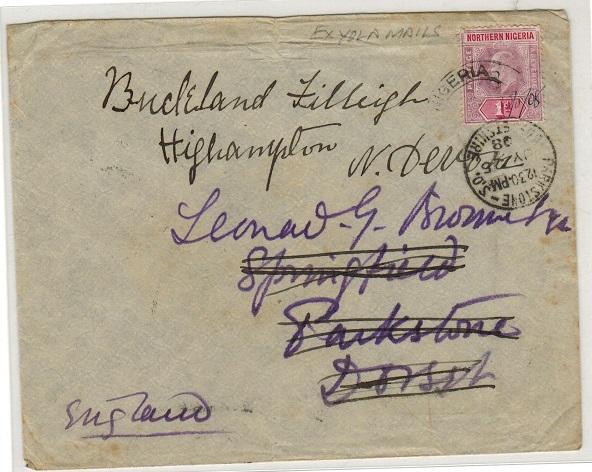 EX YOLA MAILS
NORTHERN NIGERIA
POSTAGE
1d
NIGERIA
PARKSTONE - S.O.
12.30 PM
MY 26
08
Buckland Filleigh
Highampton
N. Devon
Leonard G.
Springfield
Parkstone
Dorset
England